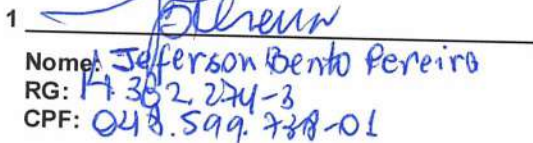 1
Nome: Jeferson Bento Pereira
RG: 14.382.274-3
CPF: 048.599.738-01